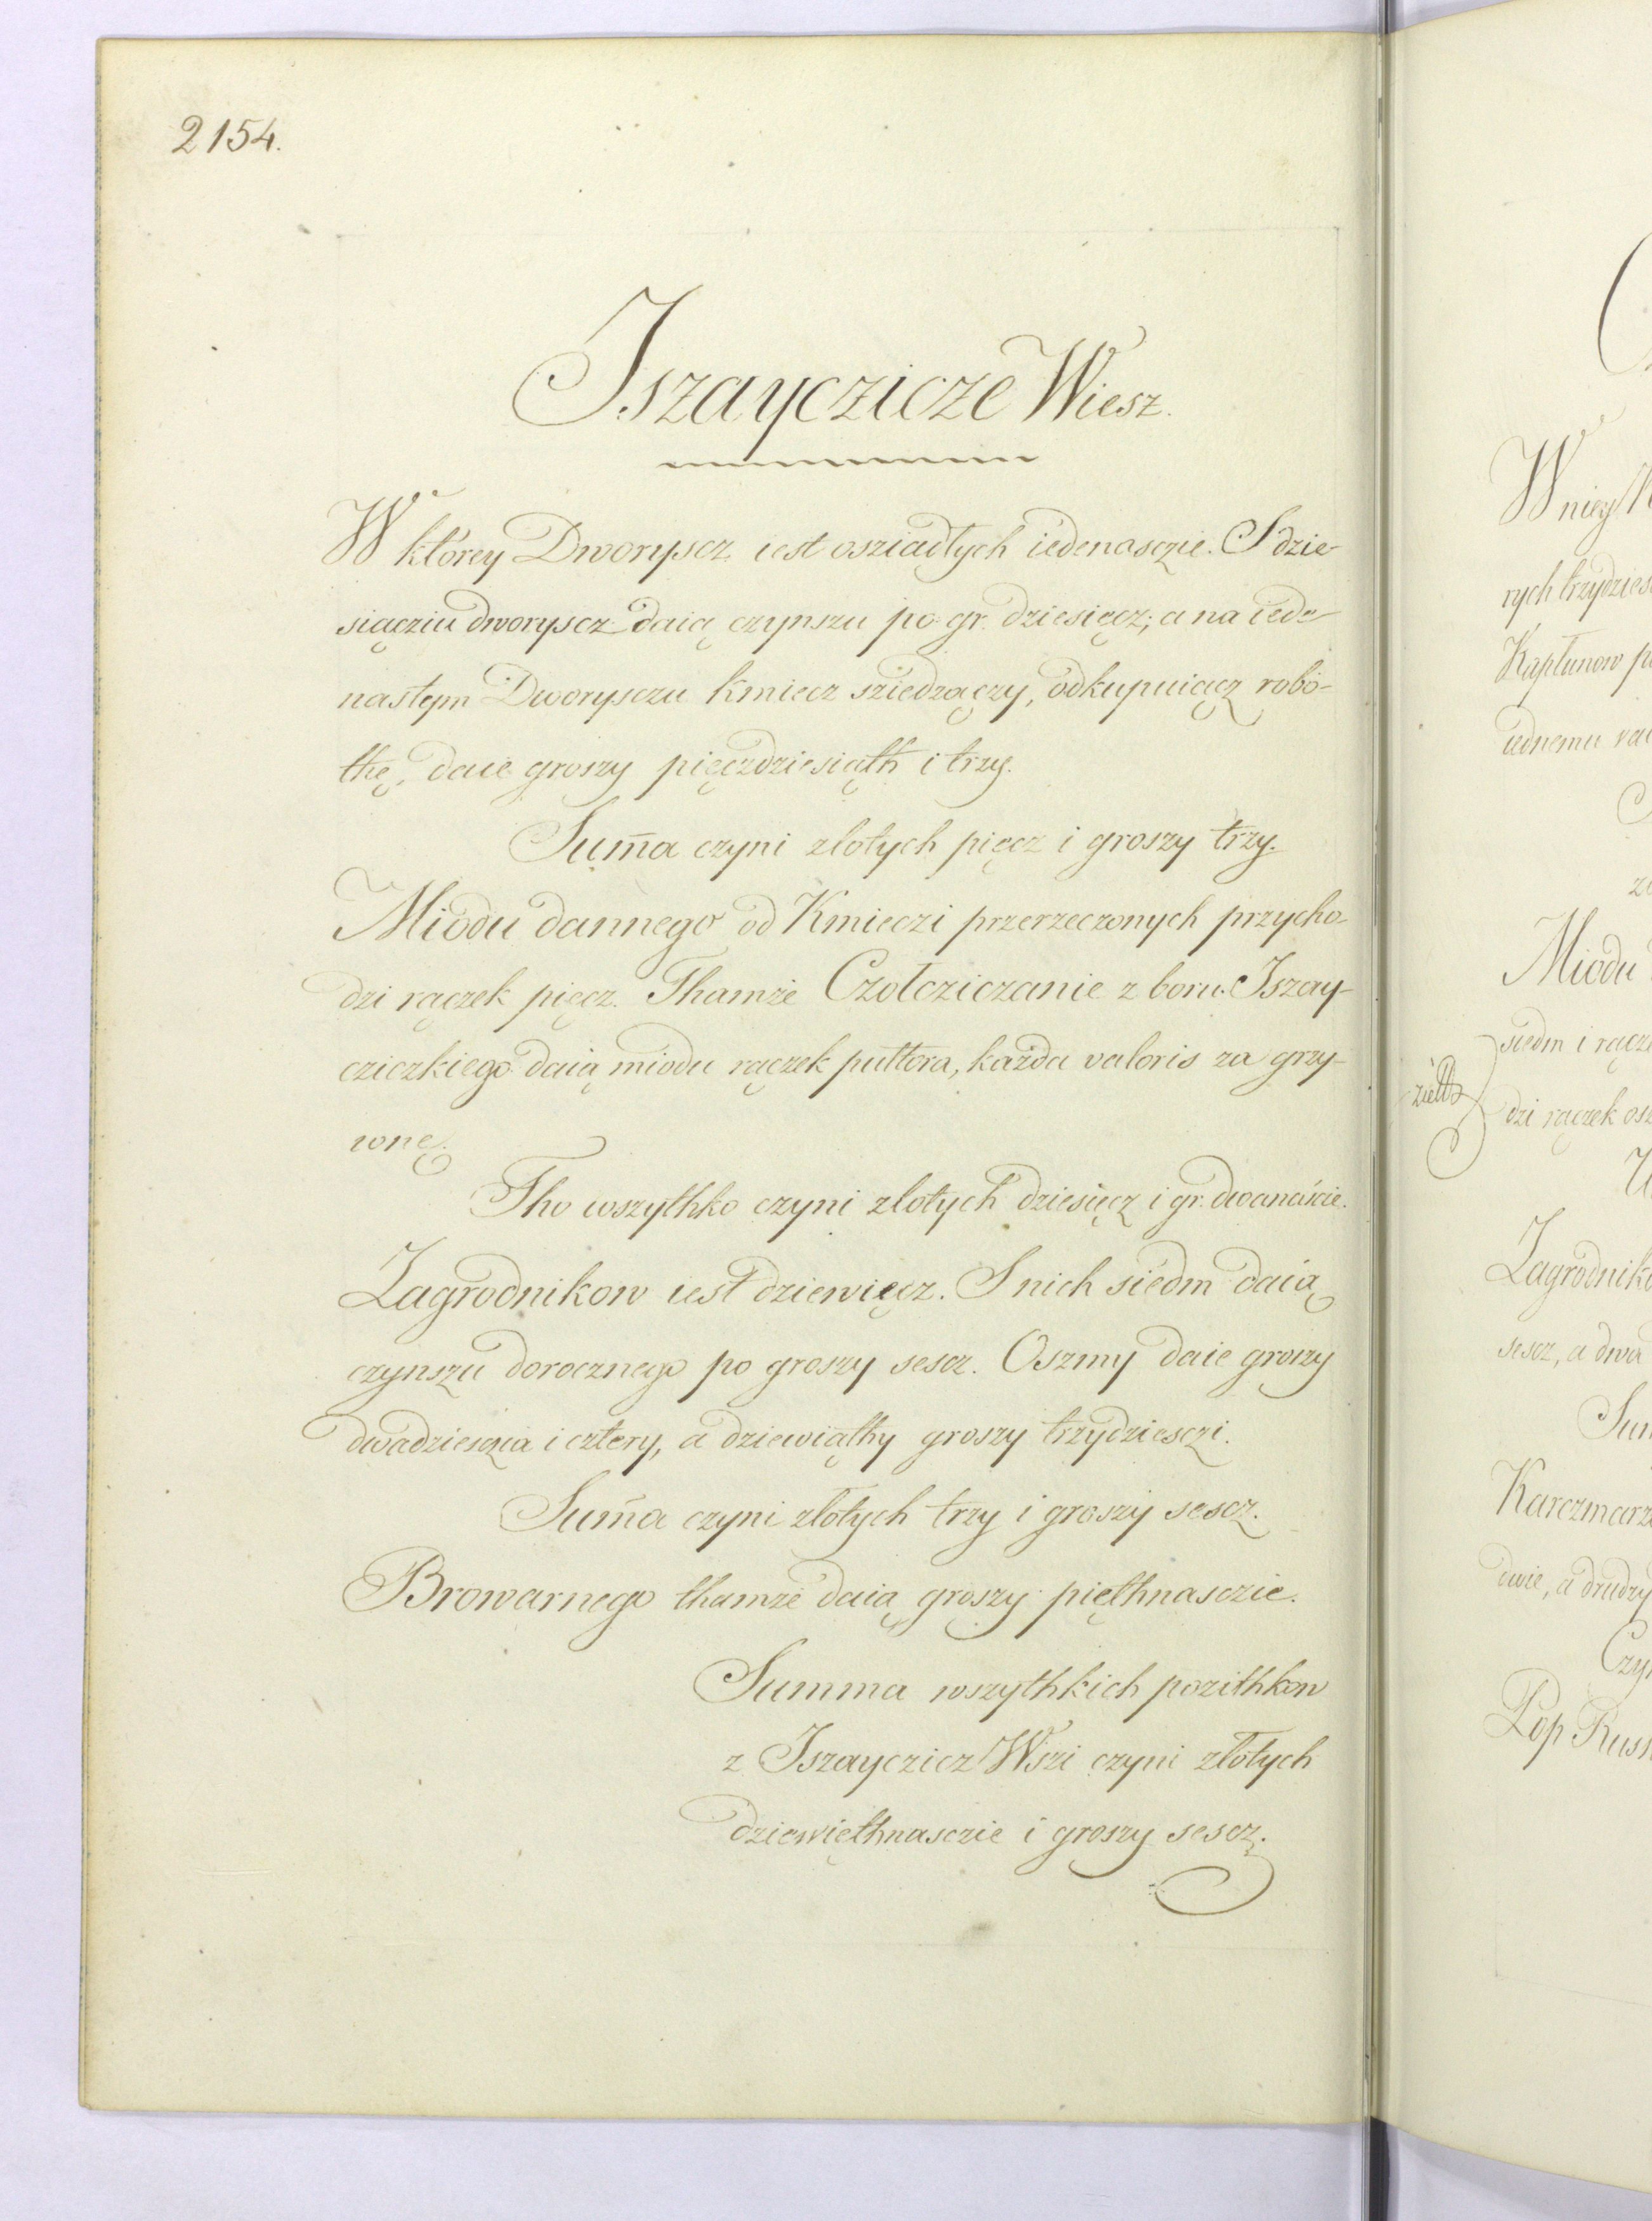 2154.
Iszayczicze Wiesz.
W ktorey Dworyscz iest osziadłych iedenasczie. S dzie-
siącziu dworyscz daią czynszu po gr. dziesięcz; a na iede-
nastym Dworysczu kmiecz sziedzączy, odkupuiącz robo-
thę, daie groszy pięczdziesiąth i trzy.
Sum̄a czyni złotych pięcz i groszy trzy.
Miodu dannego od Kmieczi przerzeczonych przycho-
dzi rączek pięcz. Thamże Czołcziczanie z boru Iszay-
cziczkiego daią miodu rączek pułtora, każda valoris za grzy-
wnę.
Tho wszythko czyni złotych dziesięcz i gr. dwanaście.
Zagrodnikow iest dziewięcz. S nich siedm daią
czynszu dorocznego po groszy sescz. Oszmy daie groszy
dwadziescza i cztery, a dziewiąthy groszy trzydziesczi.
Sum̄a czyni złotych trzy i groszy sescz.
Browarnego thamże daią groszy pięthnasczie.
Summa wszythkich pozithkow
z Iszayczicz Wszi czyni złotych
dziewięthnasczie i groszy sescz.
W niey
rych trzydzies
Kapłunow
iednemu
Miodu
siedm i rącze
dzi rączek
Zagrodniko
sescz, a dwa
Sum
Karczmarz
dwie, a drudzy
Czy
Pop Russ